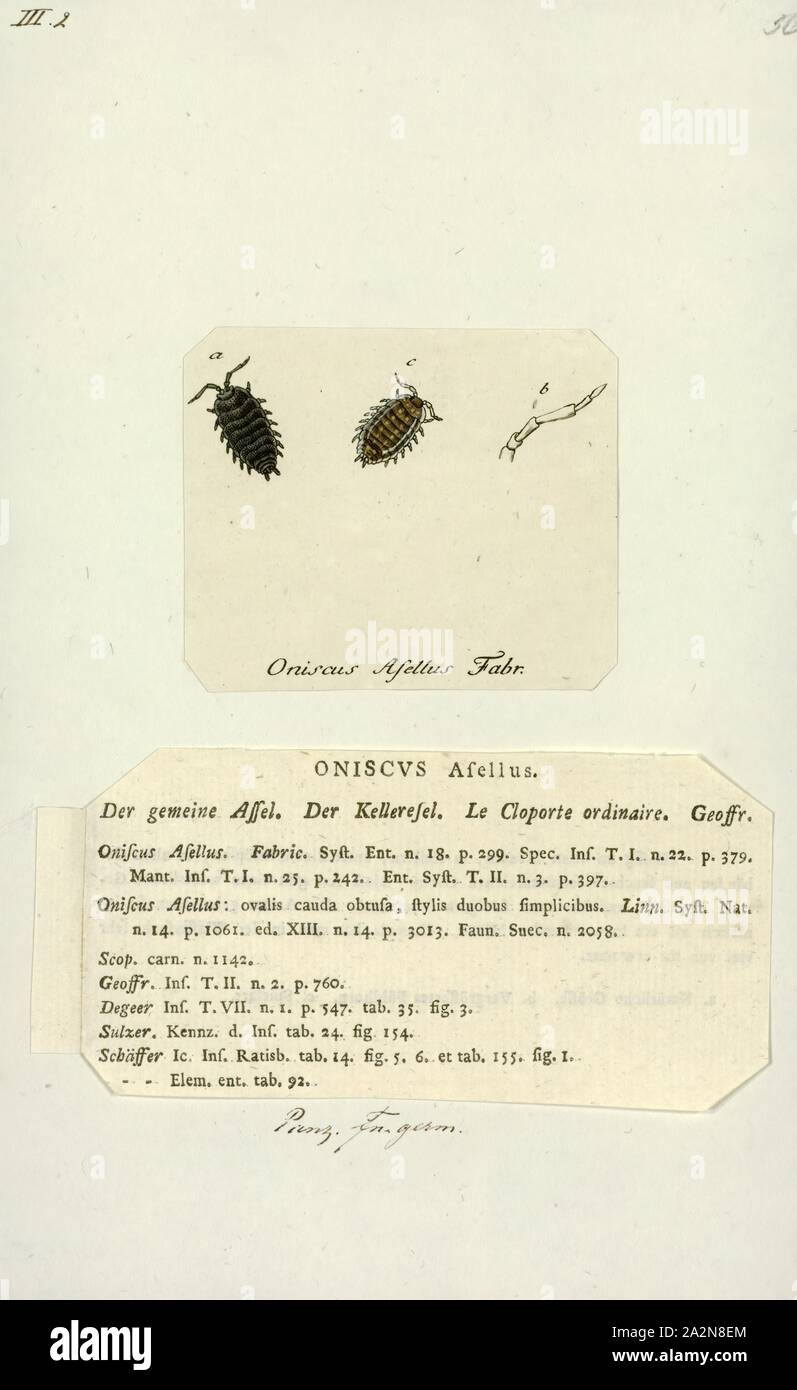 III.2
a
c
b
Oniscus Aſellus Fabr.
ONISCVS Aſellus.
Der gemeine Aſſel. Der Kellereſel. Le Cloporte ordinaire. Geoffr.
Oniſcus Aſellus. Fabric. Syſt. Ent. n. 18. p. 299. Spec. Inſ. T. I. n. 22. p. 379.
Mant. Inſ. T. I. n. 25. p. 242. Ent. Syſt. T. II. n. 3. p. 397.
Oniſcus Aſellus: ovalis cauda obtuſa, ſtylis duobus ſimplicibus. Linn. Syſt. Nat.
n. 14. p. 1061. ed. XIII. n. 14. p. 3013. Faun. Suec. n. 2058.
Scop. carn. n. 1142.
Geoffr. Inſ. T. II. n. 2. p. 760.
Degeer Inſ. T. VII. n. 1. p. 547. tab. 35. fig. 3.
Sulzer. Kennz. d. Inſ. tab. 24. fig. 154.
Schäffer Ic. Inſ. Ratisb. tab. 14. fig. 5. 6. et tab. 155. fig. 1.
- - Elem. ent. tab. 92.
Panz. Fn. germ.
alamy
Image ID: 2A2N8EM
www.alamy.com